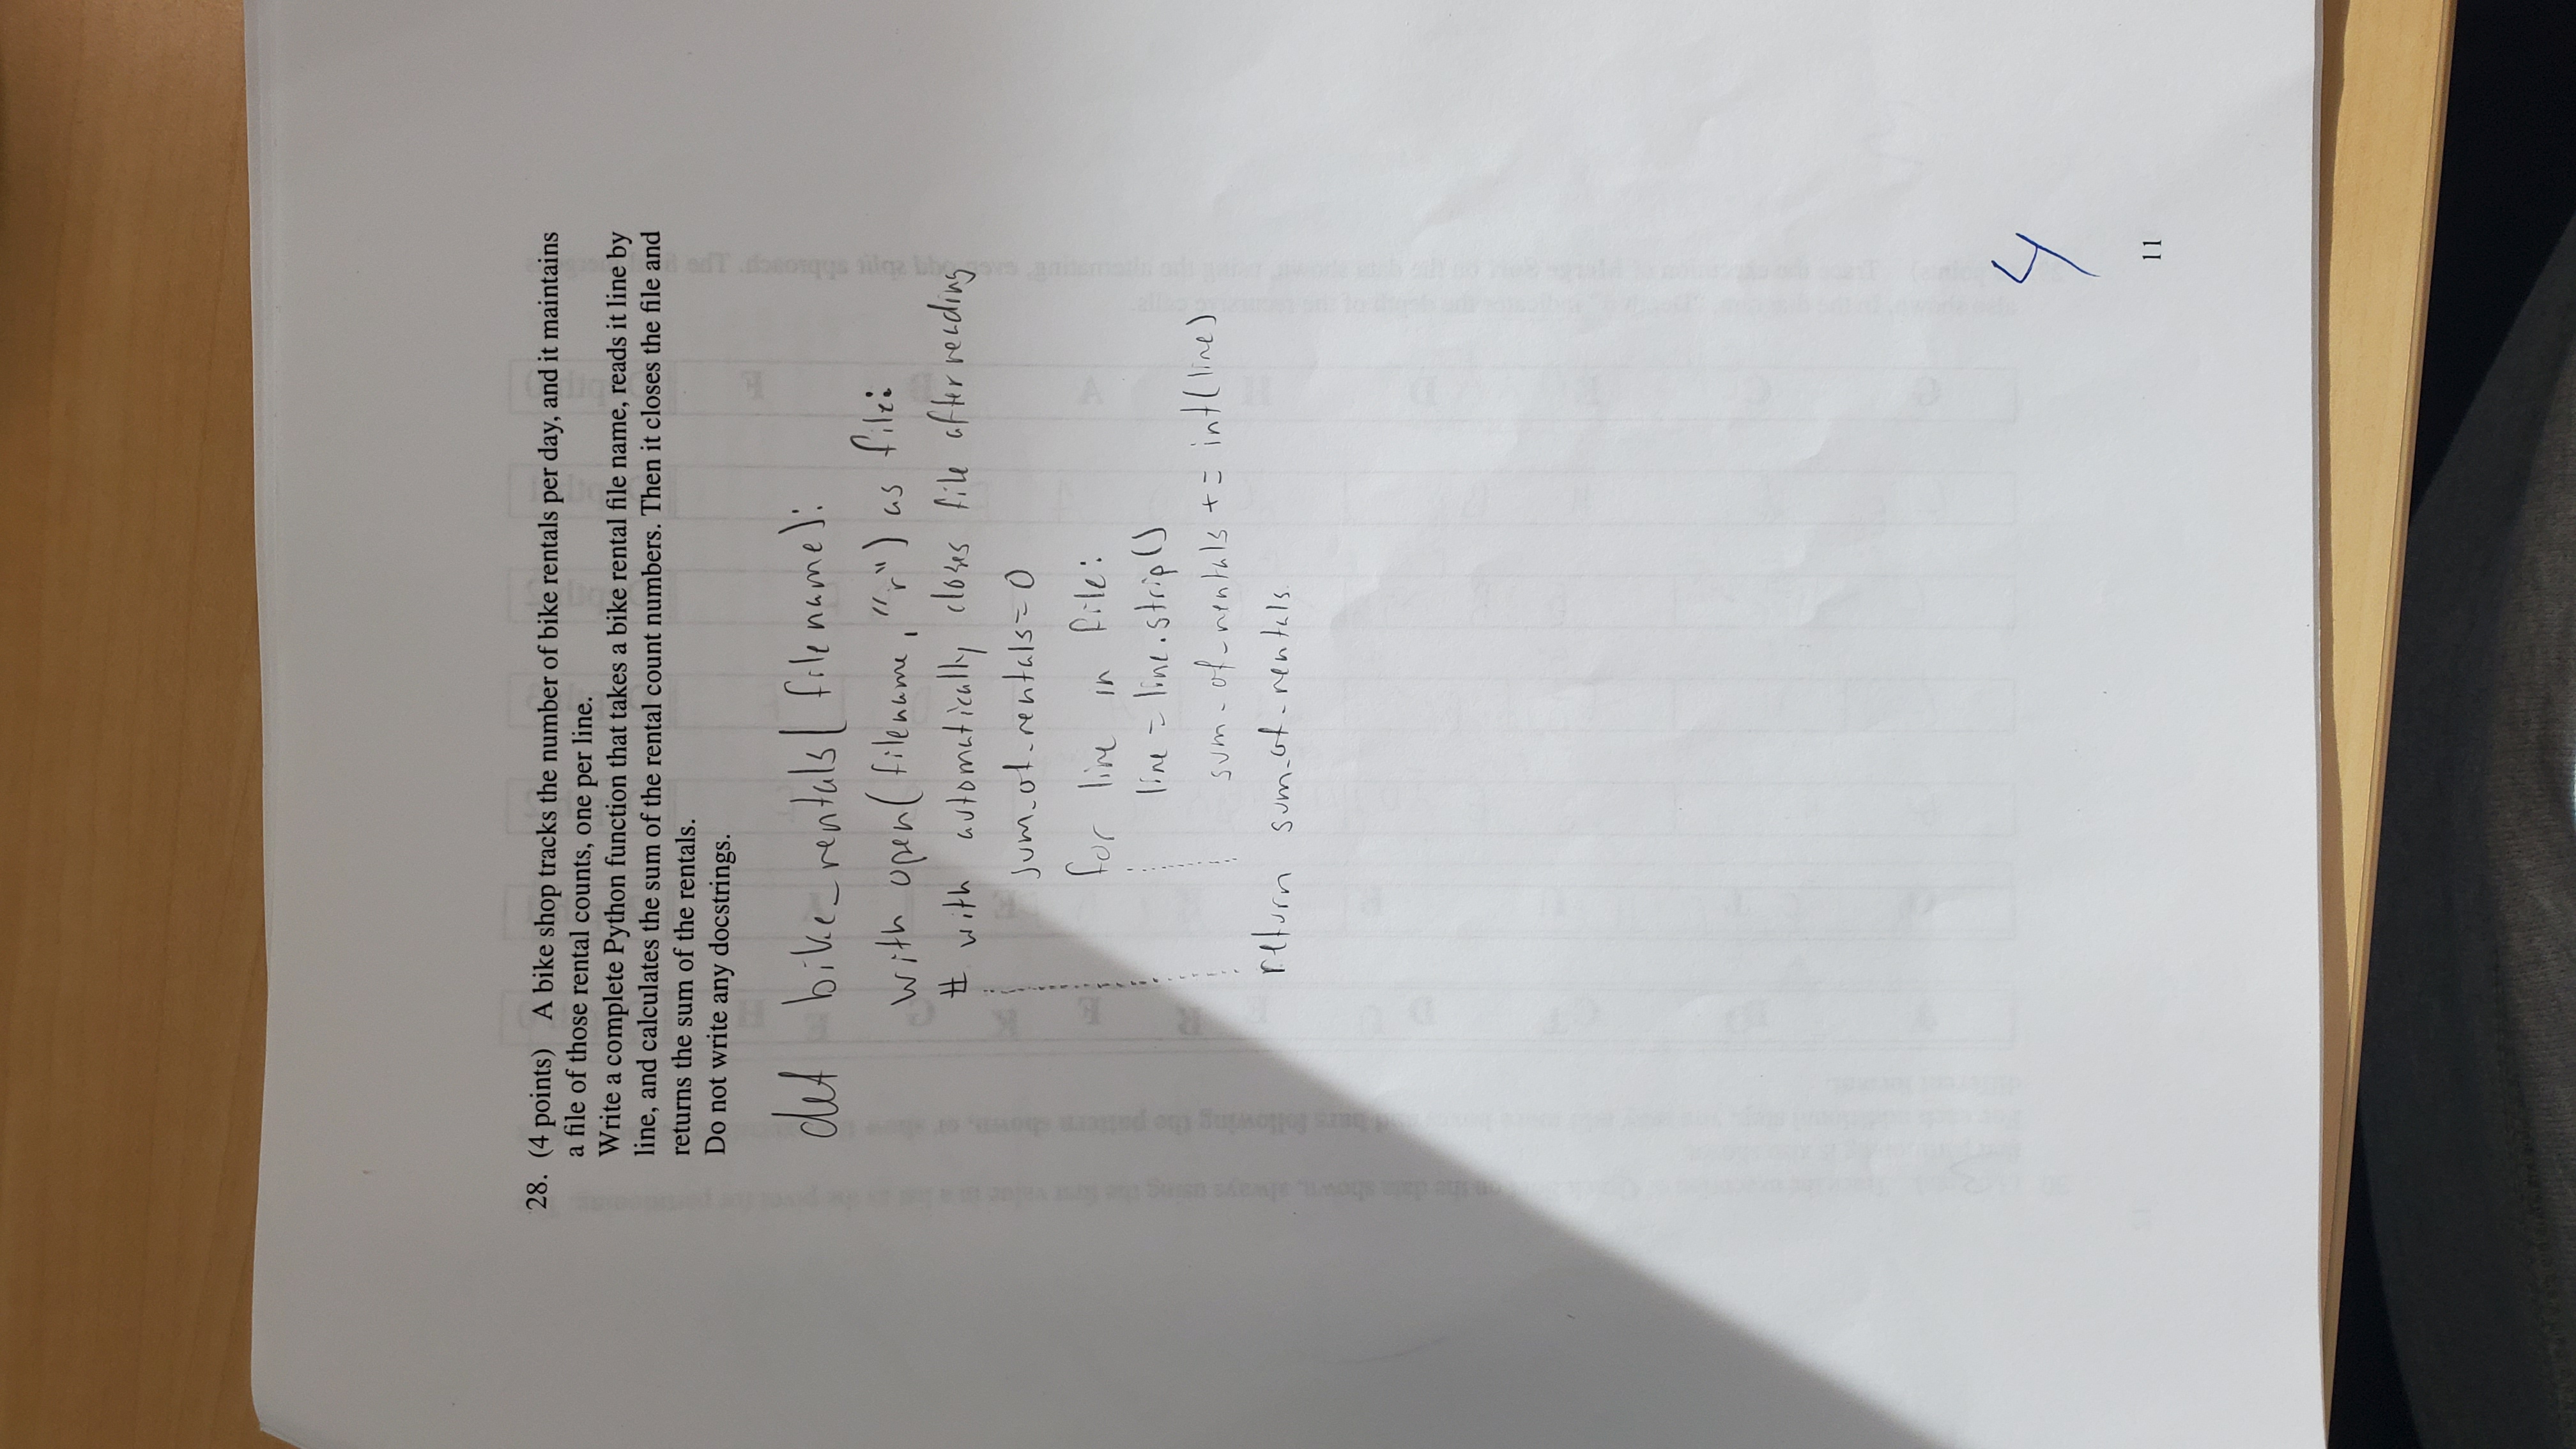 28. (4 points) A bike shop tracks the number of bike rentals per day, and it maintains
a file of those rental counts, one per line.
Write a complete Python function that takes a bike rental file name, reads it line by
line, and calculates the sum of the rental count numbers. Then it closes the file and
returns the sum of the rentals.
Do not write any docstrings.
def bike_rentals(filename):
with open(filename, "r") as file:
# with automatically closes file after reading
sum_of_rentals = 0
for line in file:
line = line.strip()
sum_of_rentals += int(line)
return sum_of_rentals
4
11